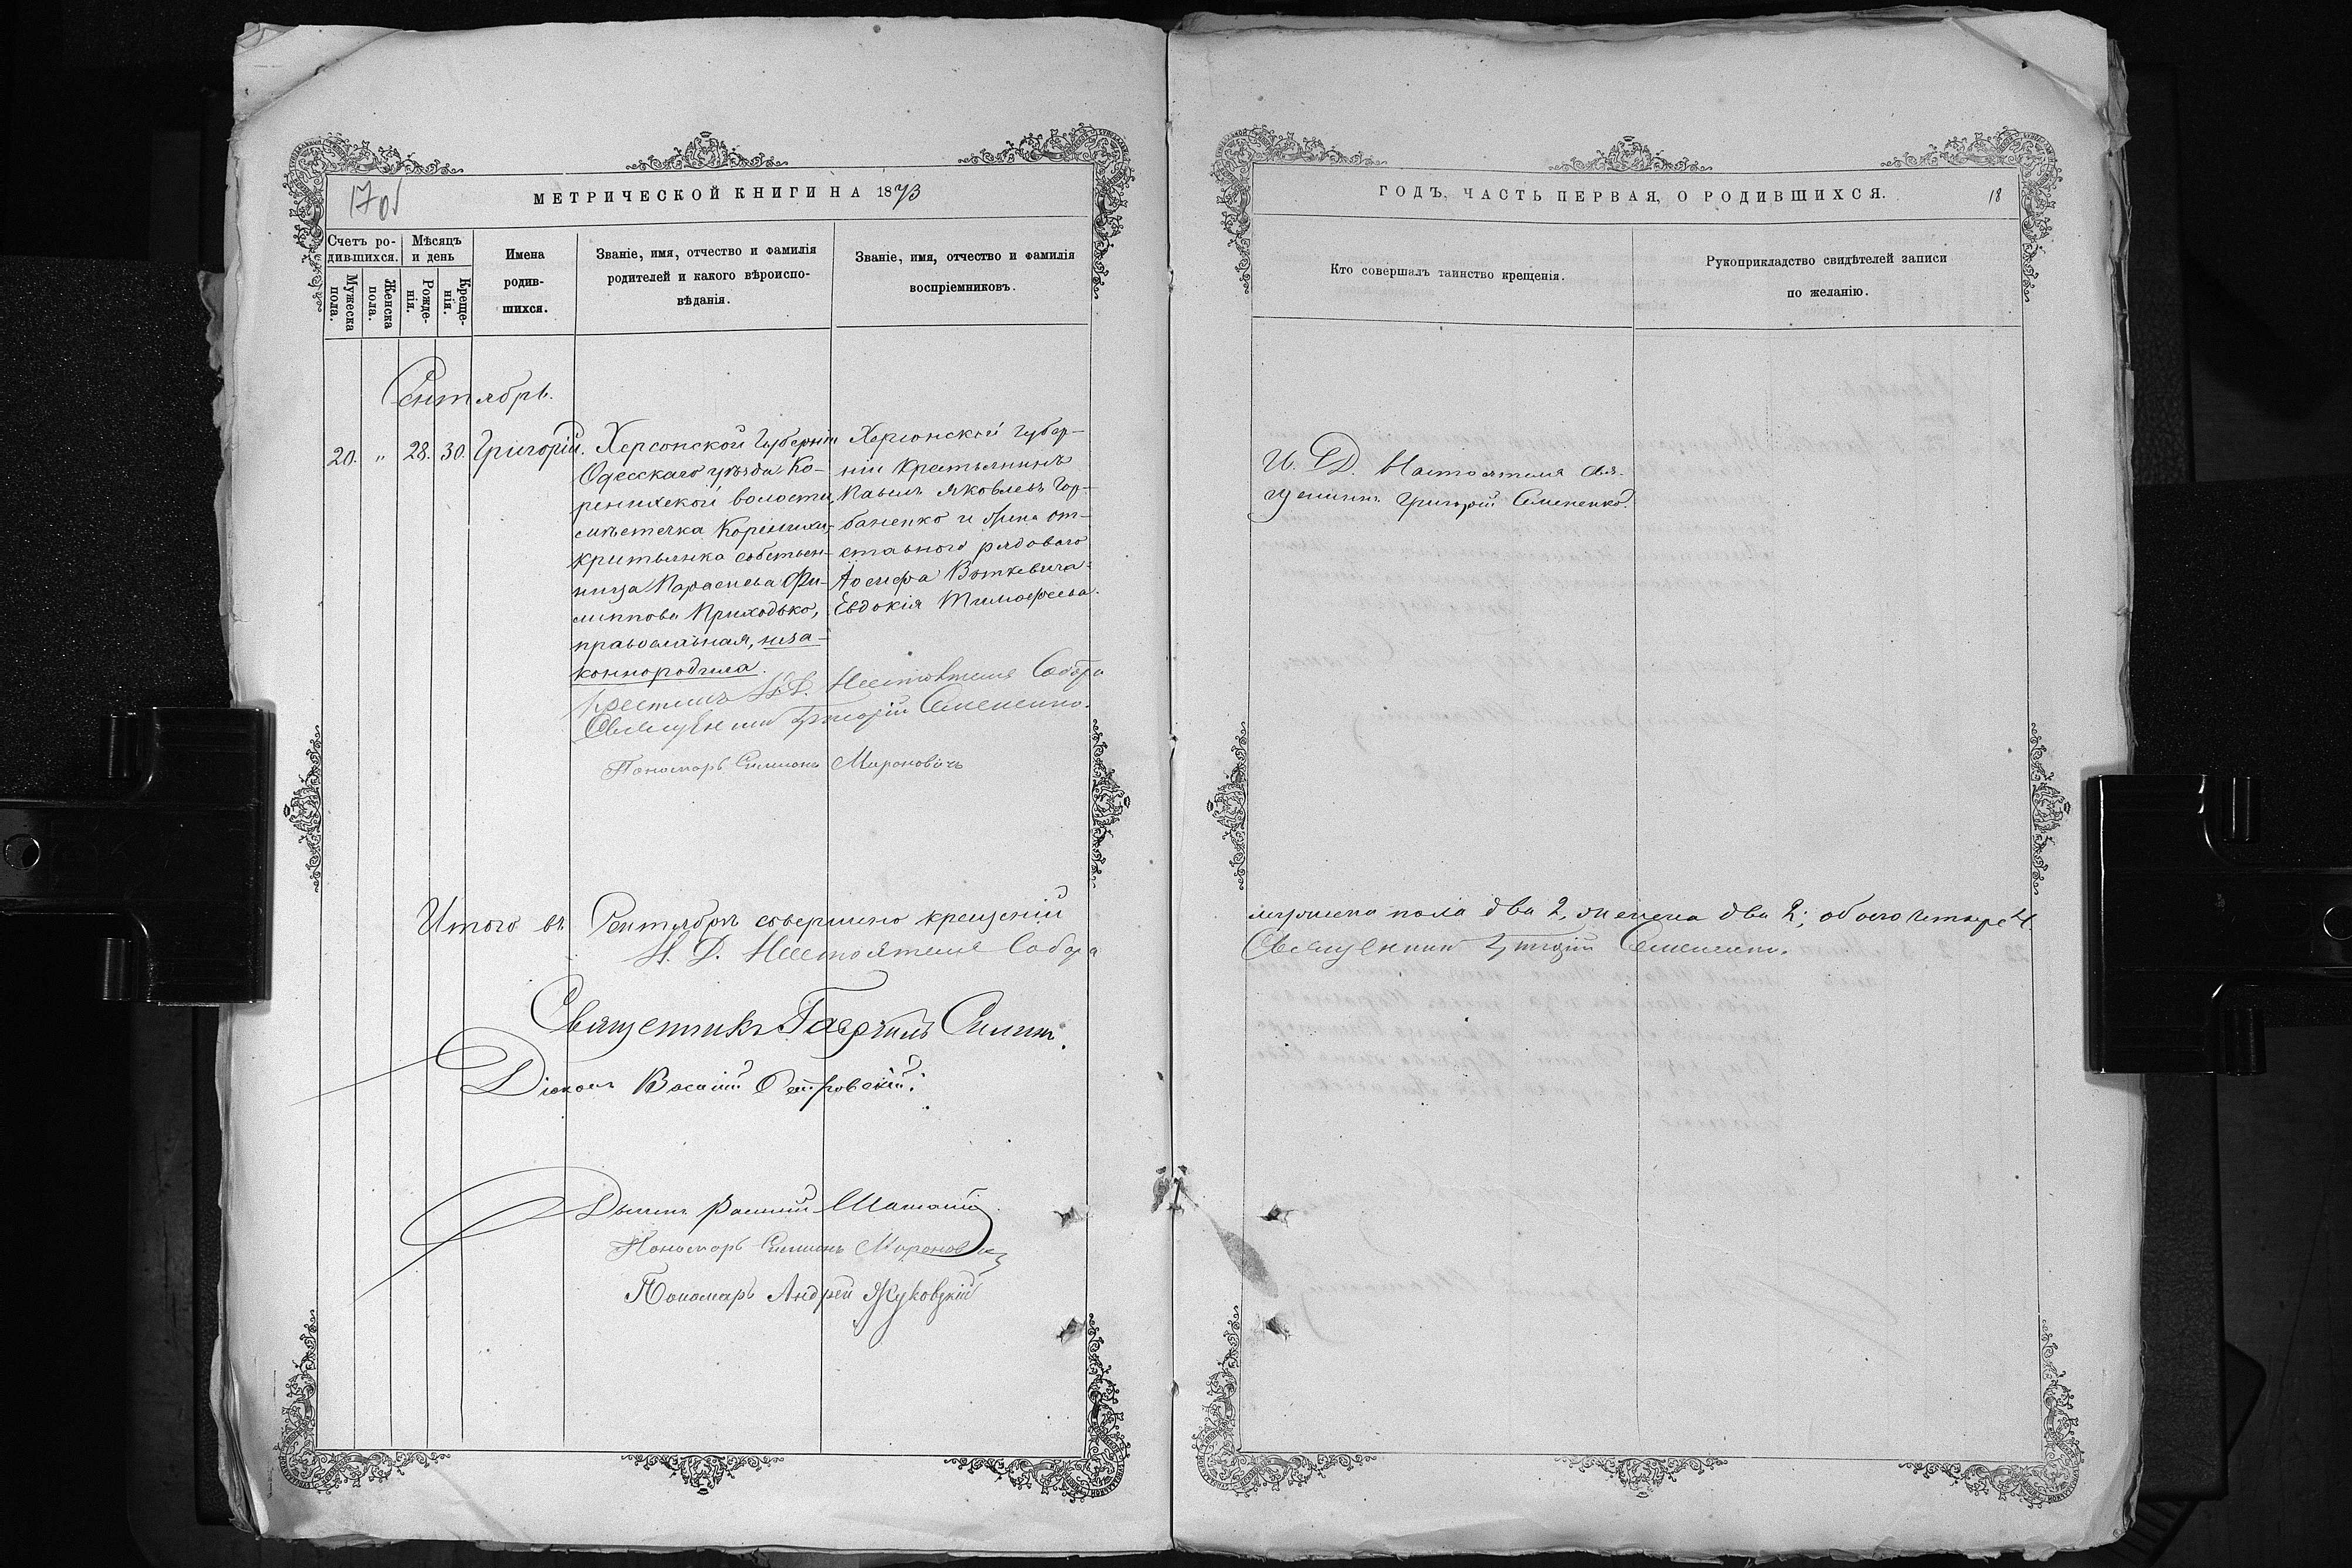 17об
МЕТРИЧЕСКОЙ КНИГИ НА 1873
Счетъ ро-
дившихся.
Мѣсяцъ
и день
Мужеска
пола.
Женска
пола.
Рожде-
нія.
Креще-
нія.
Имена
родив-
шихся.
Званіе, имя, отчество и фамилія
родителей и какого вѣроиспо-
вѣданія.
Званіе, имя, отчество и фамилія
воспріемниковъ.
Сентябрь.
20. " 28. 30. Григорій.
Херсонской Губерніи
Одесскаго уѣзда Ко-
ренихской волости,
мѣстечка Коренихи,
критьянка собствен-
ница Параскева Фи-
липпова Приходько,
православная, неза-
коннородила.
Херсонской губер-
ніи крестьянинъ
Павелъ Яковлевъ Гор-
баненко и жена от-
ставного рядового
Іосифа Воткевича
Евдокія Тимофеева.
Крестилъ И. Д. Настоятеля Собора
Священникъ Григорій Семененко.
Пономарь Симеонъ Мироновичъ
Итого въ Сентябрѣ совершено крещеній
И. Д. Настоятеля Собора
Священникъ Гавріилъ
Діаконъ Василій Петровскій
Пономарь Симеонъ Мироновичъ
Пономарь Андрей Жуковскій
ГОДЪ, ЧАСТЬ ПЕРВАЯ, О РОДИВШИХСЯ.
18
Кто совершалъ таинство крещенія.
Рукоприкладство свидѣтелей записи
по желанію.
И. Д. Настоятеля Свя-
щенникъ Григорій Семененко.
мужеска пола два 2, женска два 2; обоего четыре 4.
Священникъ Григорій Семененко.